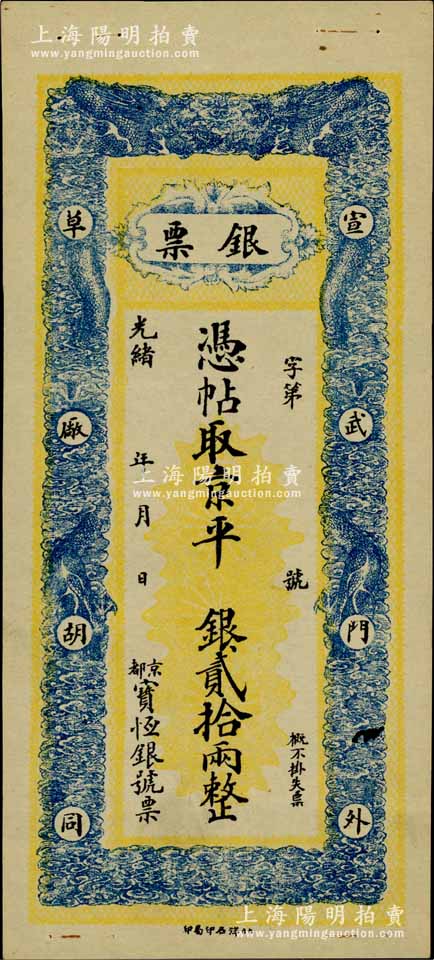 上海陽明拍賣
www.yangmingauction.com
銀票
宣武門外
草廠胡同
字第 號
概不掛失票
憑帖取京平 銀貳拾兩整
光緒 年 月 日
京都寶恆銀號票
上海陽明拍賣
www.yangmingauction.com
石印局印
上海陽明拍賣
www.yangmingauction.com